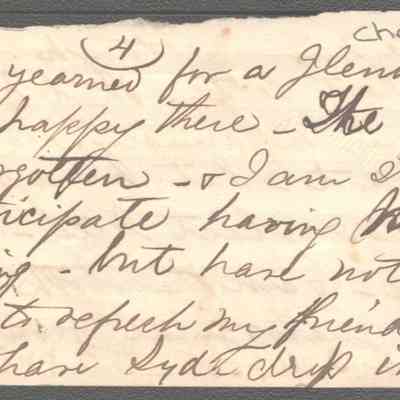 4
cha
yearned for a Glen
happy there - The
rgotten - & I am
ticipate having
ing - but have not
to refresh my friend
have Syd. drip in